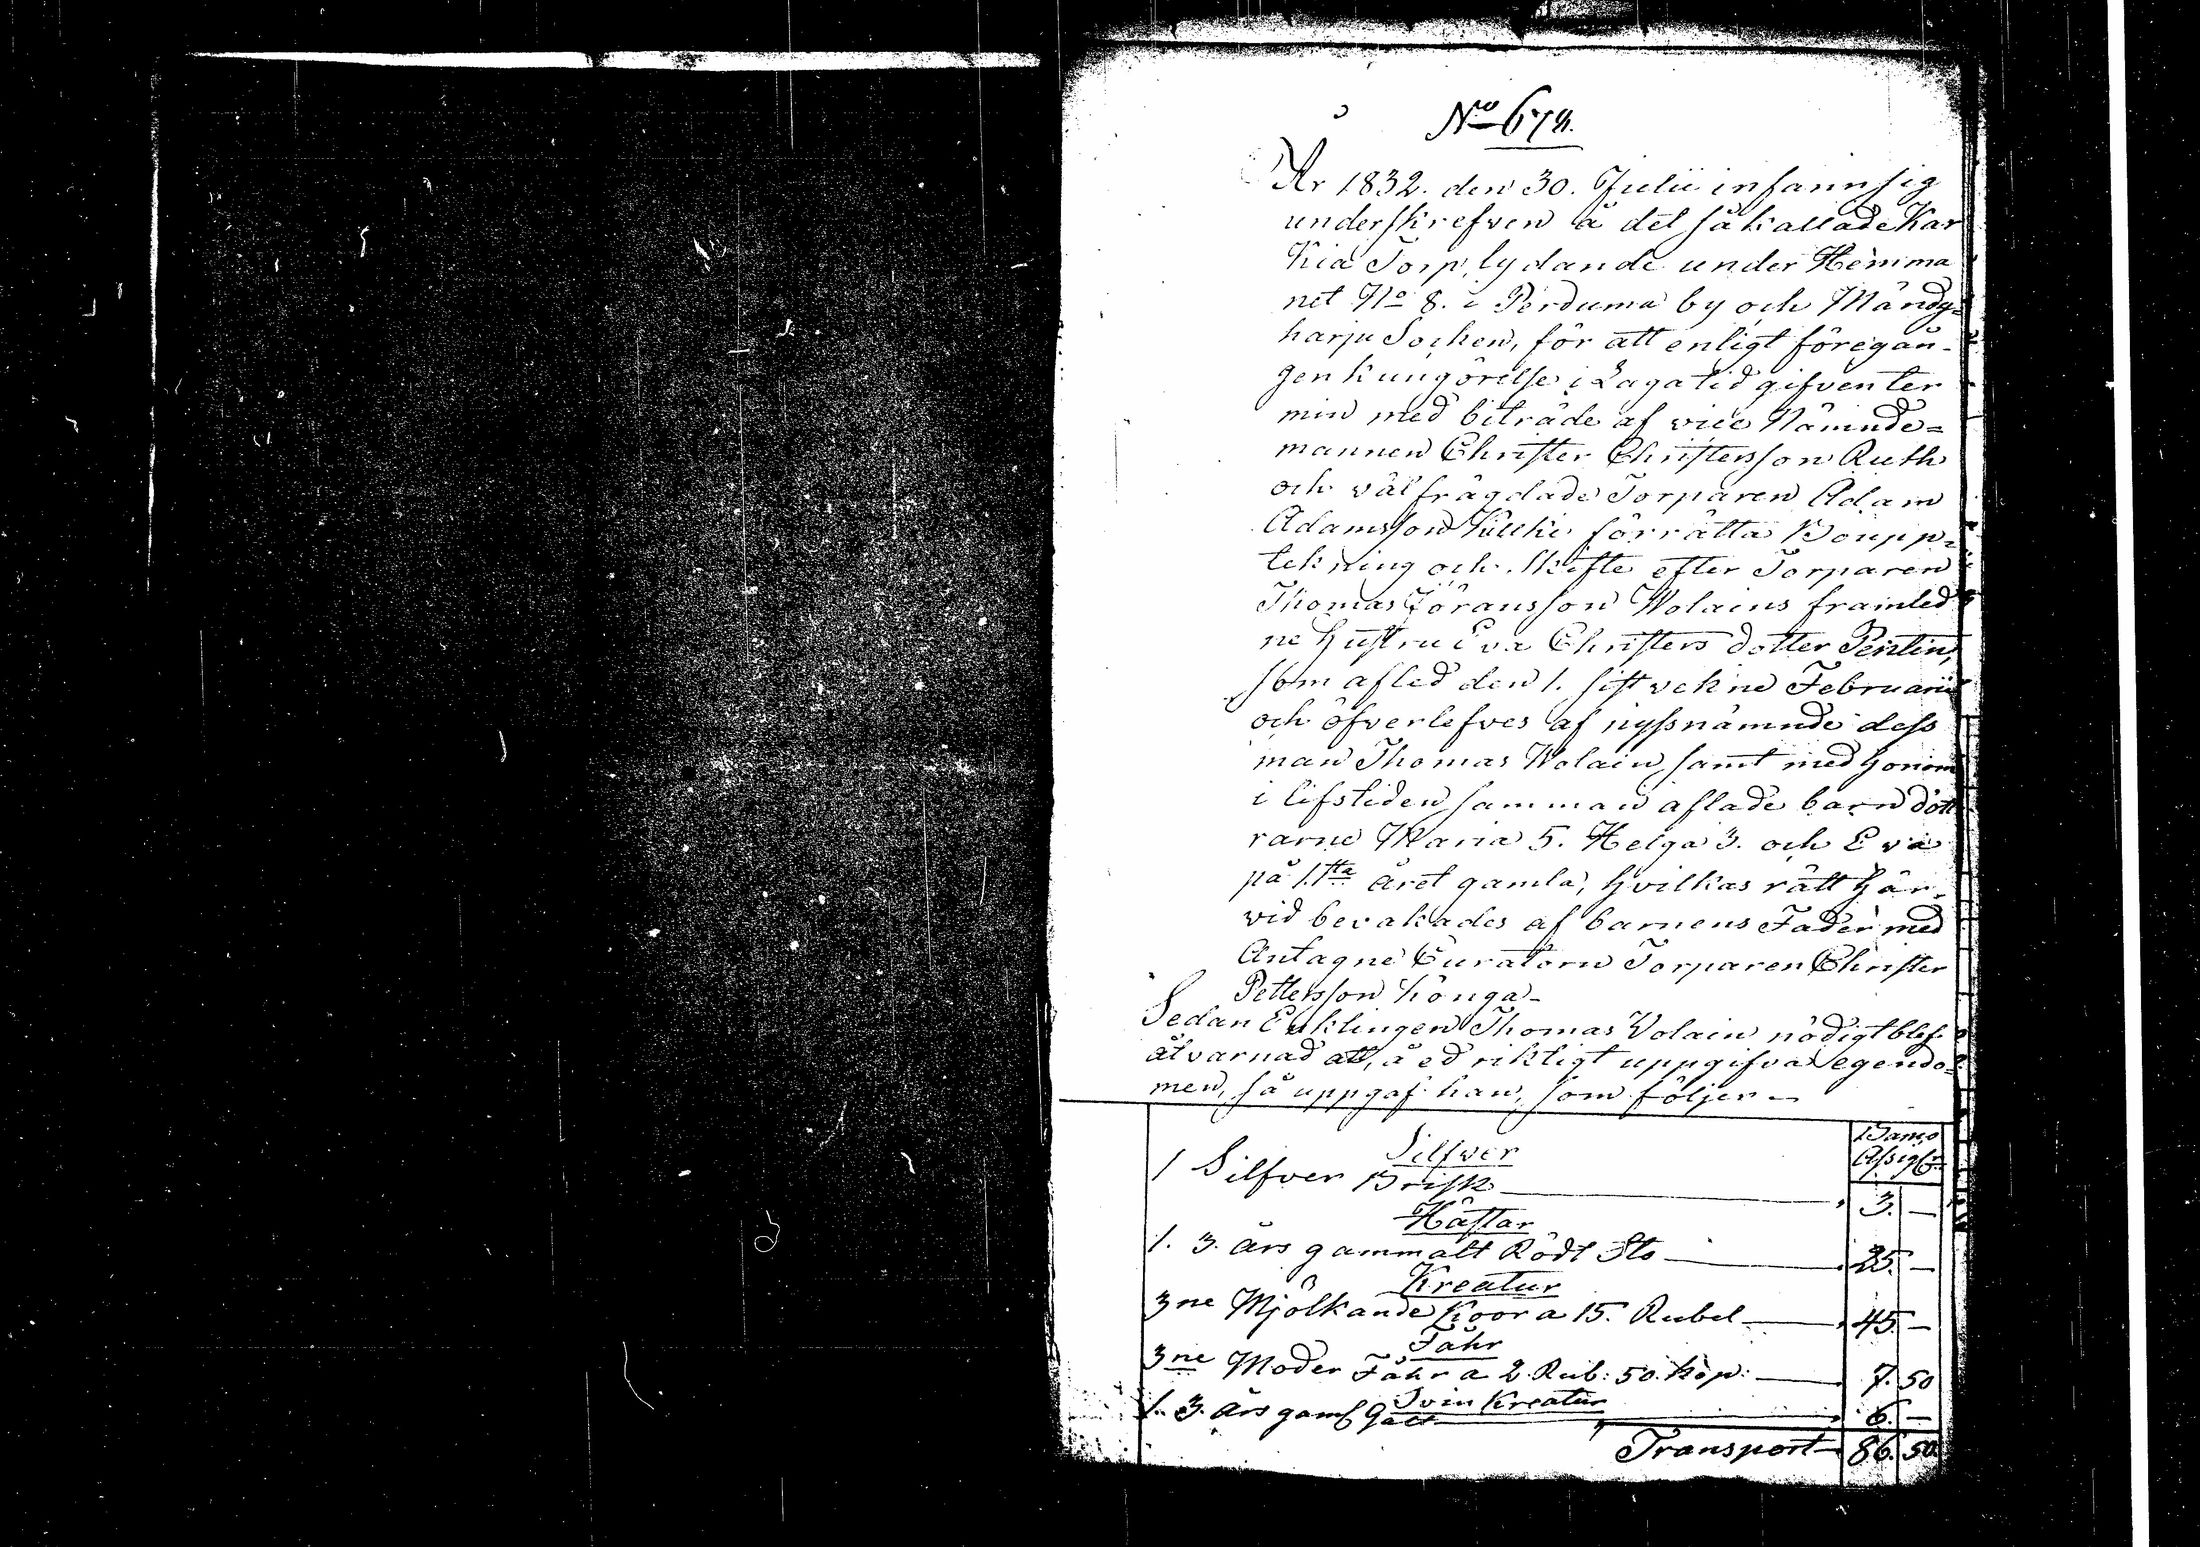 No 678.
År 1832. den 30. Julii infann sig
underskrefven å det så kallade Kar
kia Torp, lydande under Hemma
net No 8. i Perduma by och Mändy=
harju Sochen, för att enligt föregån-
gen kungörelse i Laga tid gifven ter
min med biträde af vice Nämnde=
mannen Christer Christersson Ruth
och välfrägdade Torparen Adam
Adamsson förrätta Boupp=
tekning och skifte efter Torparen
Thomas Jöransson Wolains framled
ne hustru Eva Christers dotter Pentin,
som afled den 1. sistvekne Februarii
och öfverlefves af nyssnämnde dess
man Thomas Wolain samt med honom
i lifstiden samman aflade barn dött
rarne Maria 5. Helga 3. och Eva
på 1.sta året gamla, hvilkas rätt här-
vid bevakades af barnens Fader med
Antagne Curatorn Torparen Christer
Pettersson Könga-
Sedan Enklingen Thomas Wolain nödigt blef
åtvarnad att, å ed riktigt uppgifva egendo=
men, så uppgaf han, som följer -
Banco
Assigtr
Silfver
1 Silfver Brisk 3. —
Hästar
1. 3. års gammalt Rödt Sto 25. —
Kreatur
3ne Mjölkande Koor a 15. Rubel 45. —
Fåhr
3ne Moder Fåhr a 2. Rub: 50. kop: 7. 50
Svin Kreatur
1. 3. års gaml Galt 6. —
Transport 86. 50